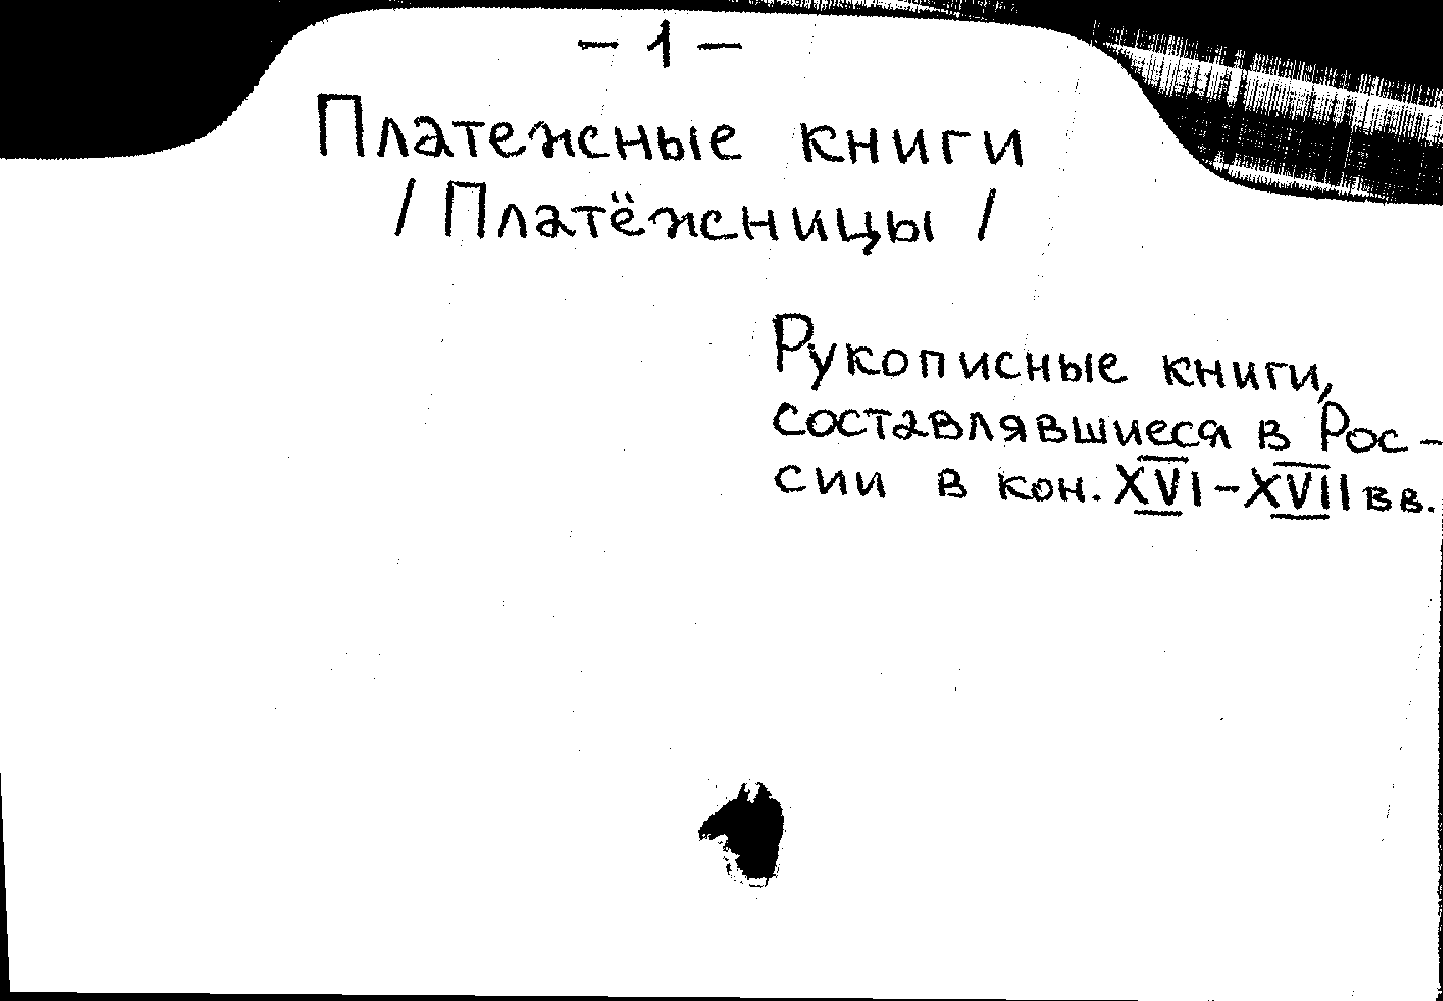 – 1 –
Платежные книги
/ Платёжницы /
Рукописные книги,
составлявшиеся в Рос-
сии в кон. XVI – XVII вв.